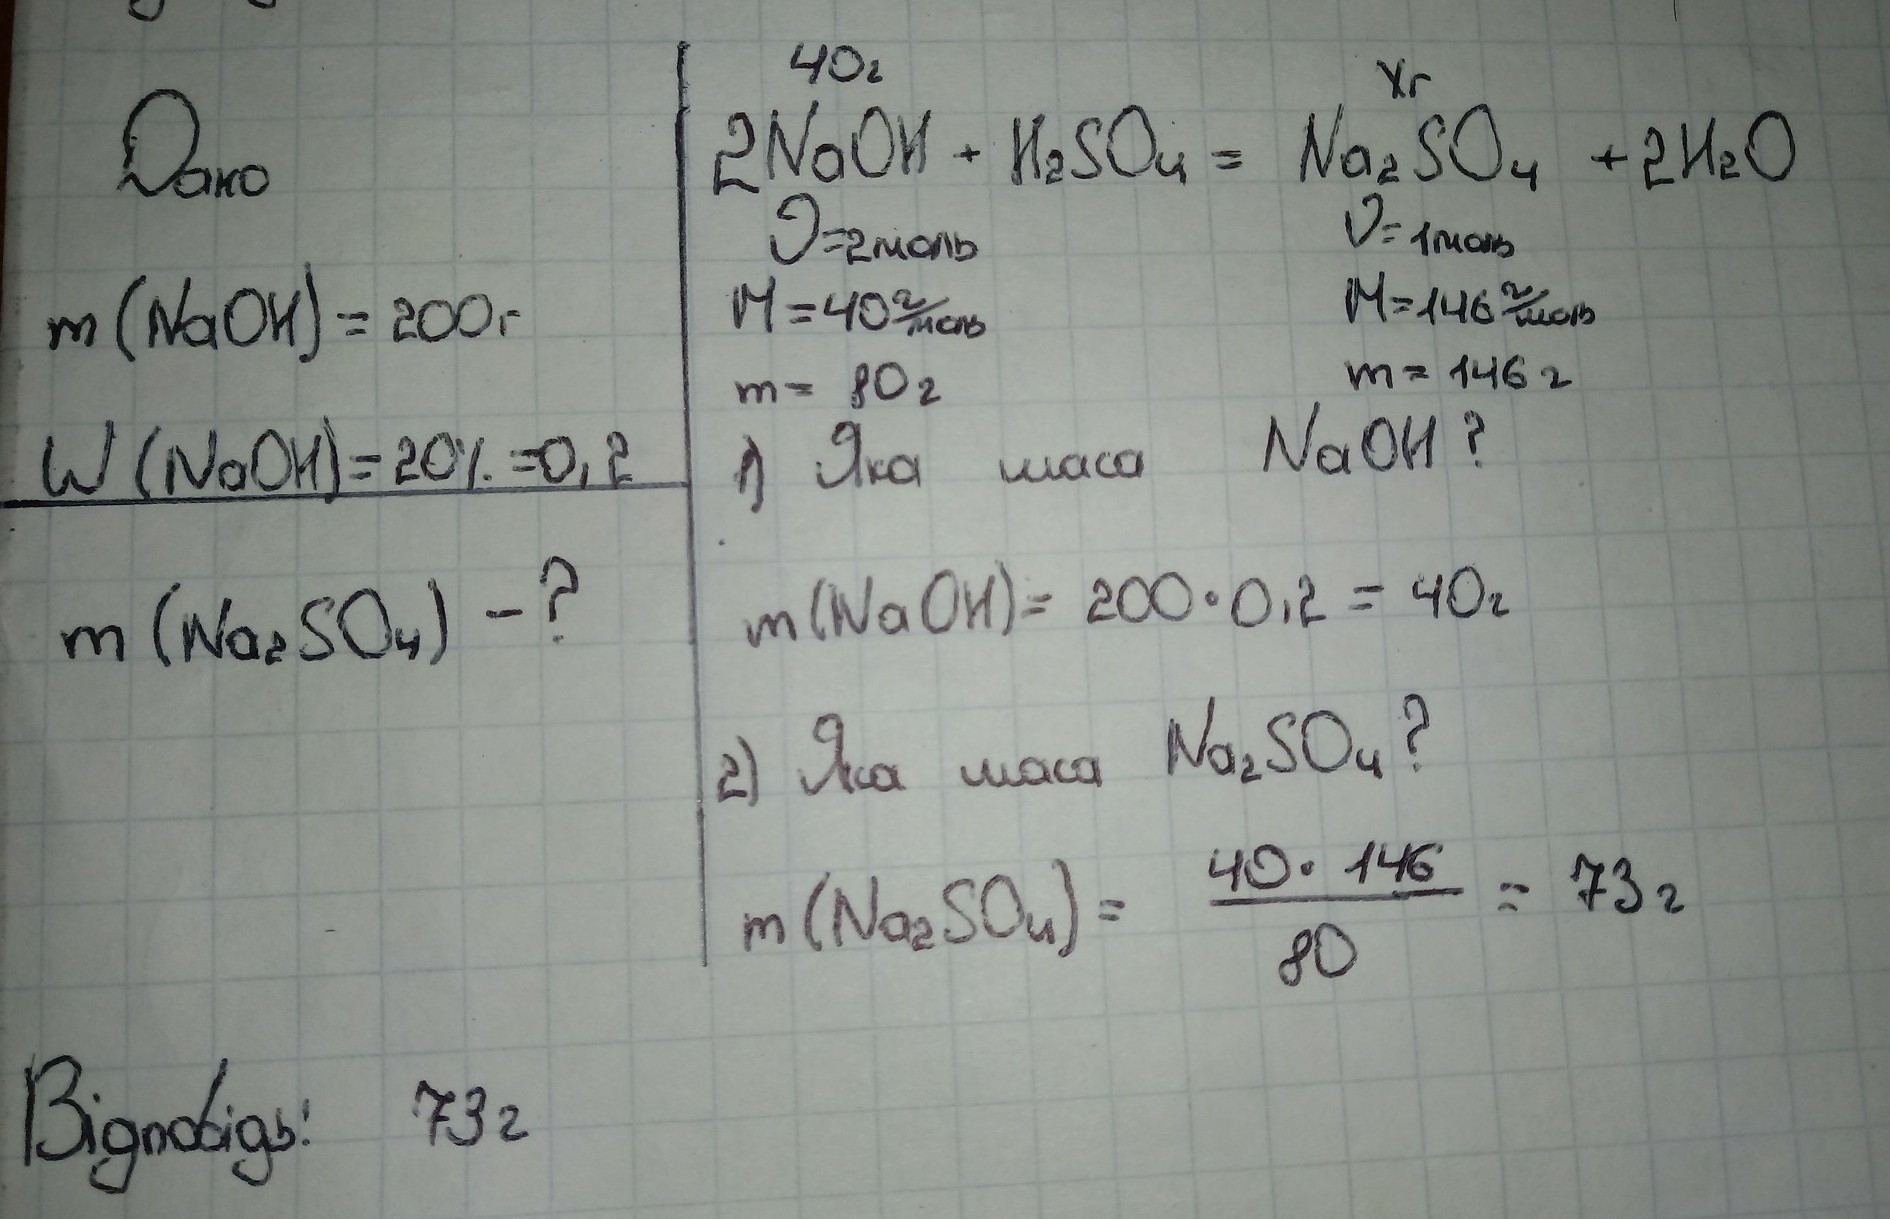 Дано
m (NaOH) = 200г
W (NaOH) = 20% = 0,2
m (Na₂SO₄) - ?
40г
Xг
2NaOH + H₂SO₄ = Na₂SO₄ + 2H₂O
ν = 2моль
ν = 1моль
M = 40 г/моль
M = 146 г/моль
m = 80г
m = 146г
1) Яка маса NaOH?
m (NaOH) = 200 · 0,2 = 40г
2) Яка маса Na₂SO₄?
m (Na₂SO₄) = 40 · 146 / 80 = 73г
Відповідь: 73г